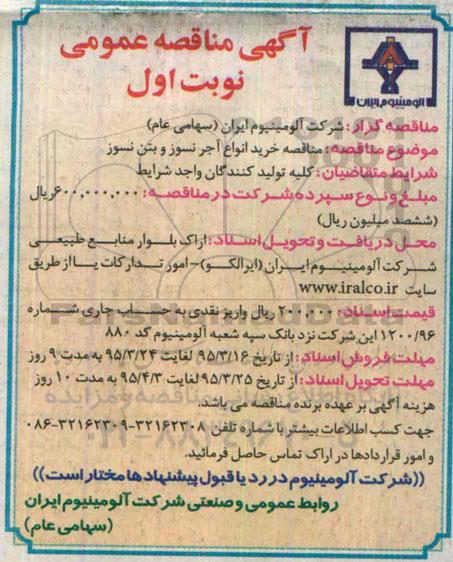 آگهی مناقصه عمومی
نوبت اول
آلومینیوم ایران
مناقصه گزار: شرکت آلومینیوم ایران (سهامی عام)
موضوع مناقصه: مناقصه خرید انواع آجر نسوز و بتن نسوز
شرایط متقاضیان: کلیه تولید کنندگان واجد شرایط
مبلغ و نوع سپرده شرکت در مناقصه: ۶۰۰,۰۰۰,۰۰۰ریال
(ششصد میلیون ریال)
محل دریافت و تحویل اسناد: اراک بلوار منابع طبیعی
شرکت آلومینیوم ایران (ایرالکو)- امور تدارکات یا از طریق
سایت www.iralco.ir
قیمت اسناد: ۲۰۰,۰۰۰ ریال واریز نقدی به حساب جاری شماره
۱۲۰۰/۹۶ این شرکت نزد بانک سپه شعبه آلومینیوم کد ۸۸۰
مهلت فروش اسناد: از تاریخ ۹۵/۳/۱۶ لغایت ۹۵/۳/۲۴ به مدت ۹ روز
مهلت تحویل اسناد: از تاریخ ۹۵/۳/۲۵ لغایت ۹۵/۴/۳ به مدت ۱۰ روز
هزینه آگهی بر عهده برنده مناقصه می باشد.
جهت کسب اطلاعات بیشتر با شماره تلفن ۳۲۱۶۲۳۰۸-۳۲۱۶۲۳۰۹-۰۸۶
و امور قراردادها در اراک تماس حاصل فرمائید.
((شرکت آلومینیوم در رد یا قبول پیشنهادها مختار است))
روابط عمومی و صنعتی شرکت آلومینیوم ایران
(سهامی عام)